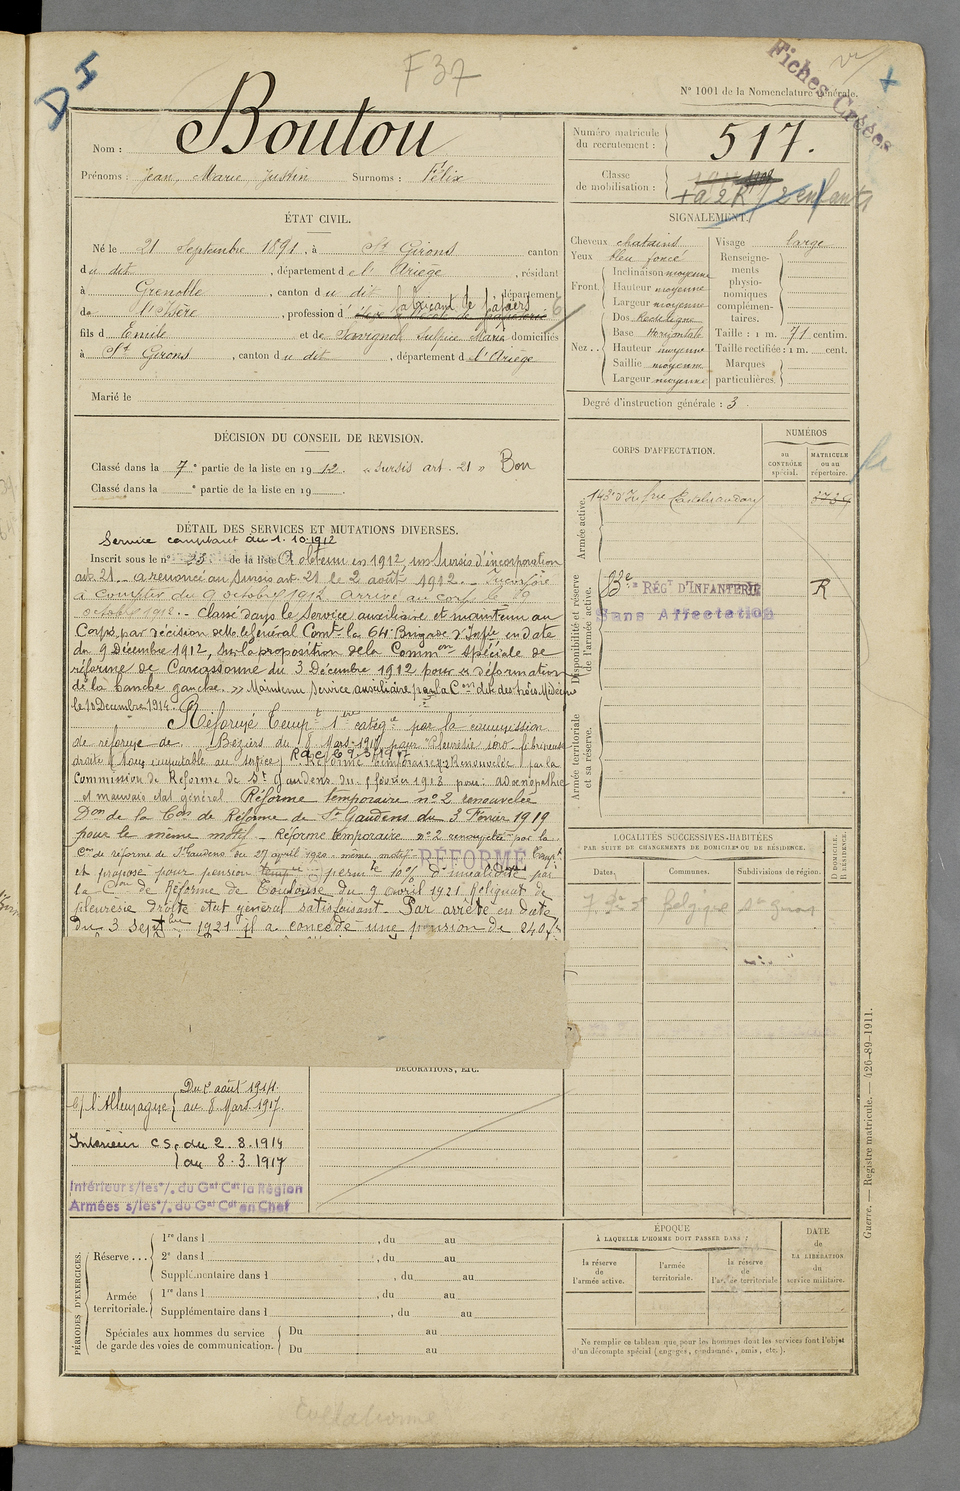 F 37
Fiches Créées
N° 1001 de la Nomenclature générale.
Nom : Boutou
Prénoms : Jean Marie Justin Surnoms : Félix
Numéro matricule du recrutement : 517.
Classe de mobilisation :
2 enfants
ÉTAT CIVIL.
Né le 21 Septembre 1891, à St Girons canton
du dit, département de l'Ariège, résidant
à Grenoble, canton du dit département
de l'Isère, profession d fabricant de papiers
fils d Emile et de Souvignol Sulpice Marie domiciliés
à St Girons, canton du dit, département d l'Ariège
Marié le
SIGNALEMENT.
Cheveux chatains
Yeux bleu foncé
Front. Inclinaison moyenne
Hauteur moyenne
Largeur moyenne
Nez.. Dos Rectiligne
Base Horizontale
Hauteur moyenne
Saillie moyenne
Largeur moyenne
Visage large
Renseignements physionomiques complémentaires.
Taille : 1 m. 71 centim.
Taille rectifiée : 1 m. cent.
Marques particulières.
Degré d'instruction générale : 3.
DÉCISION DU CONSEIL DE REVISION.
Classé dans la 7e partie de la liste en 1912. "sursis art. 21" Bon
Classé dans la e partie de la liste en 19
CORPS D'AFFECTATION.
NUMÉROS
au CONTRÔLE spécial.
MATRICULE ou au répertoire.
Armée active.
143e d'Infrie Castelnaudary
Disponibilité et réserve de l'armée active.
RÉGT D'INFANTERIE
R
Sans Affectation
Armée territoriale et sa réserve.
DÉTAIL DES SERVICES ET MUTATIONS DIVERSES.
Service comptant du 1.10.1912
Inscrit sous le n° 23 de la liste A obtenu en 1912, un Sursis d'incorporation
art. 21. a renoncé au Sursis art. 21 le 2 août 1912. Incorporé
à compter du 9 octobre 1912 arrivé au corps le 9
octobre 1912. Classé dans le Service auxiliaire et maintenu au
Corps, par décision de Mr le Général Comt la 64e Brigade d'Infie en date
du 9 Décembre 1912, Sur la proposition de la Common spéciale de
réforme de Carcassonne du 3 Décembre 1912 pour déformation
de la hanche gauche. Maintenu Service auxiliaire par la Con dite des trois Médecins
le 18 Décembre 1914.
Réformé Tempt 1ère catégie par la commission
de réforme de Béziers du 8 Mars 1917 pour Pleurésie séro-fibrineuse
droite Réforme temporaire n°2 Renouvelée par la
Commission de Réforme de St Gaudens du février 1918 pour : adénopathie
et mauvais état général Réforme temporaire n°2 renouvelée
Don de la Con de Réforme de St Gaudens du 3 Février 1919
pour le même motif. Réforme temporaire n°2 renouvelée par la
Con de réforme de St Gaudens du 27 avril 1920 même motif. RÉFORMÉ
et proposé pour pension permte 10% d'invalidité par
la Con de Réforme de Toulouse du 9 avril 1921 Reliquat de
pleurésie droite état général satisfaisant. Par arrêté en date
du 3 Septbre 1921 il a concédé une pension de 240f
LOCALITÉS SUCCESSIVES HABITÉES
PAR SUITE DE CHANGEMENTS DE DOMICILE OU DE RÉSIDENCE.
Dates. Communes. Subdivisions de région.
D DOMICILE. R RÉSIDENCE.
Belgique St Girons
DÉCORATIONS, ETC.
C/ l'Allemagne Du 2 août 1914.
au 8 Mars 1917.
Intérieur C.S. du 2.8.1914
au 8.3.1917
Intérieur s/les o/. du Gal Cdt la Région
Armées s/les o/. du Gal Cdt en Chef
PÉRIODES D'EXERCICES.
Réserve... 1re dans l , du au
2e dans l , du au
Supplémentaire dans l , du au
Armée territoriale. 1re dans l , du au
Supplémentaire dans l , du au
Spéciales aux hommes du service de garde des voies de communication. Du au
Du au
ÉPOQUE
À LAQUELLE L'HOMME DOIT PASSER DANS :
la réserve de l'armée active.
l'armée territoriale.
la réserve de l'armée territoriale
DATE de LA LIBÉRATION du service militaire.
Ne remplir ce tableau que pour les hommes dont les services font l'objet
d'un décompte spécial (engagés, condamnés, omis, etc.).
Guerre. — Registre matricule. — 426-89-1911.
Collationné